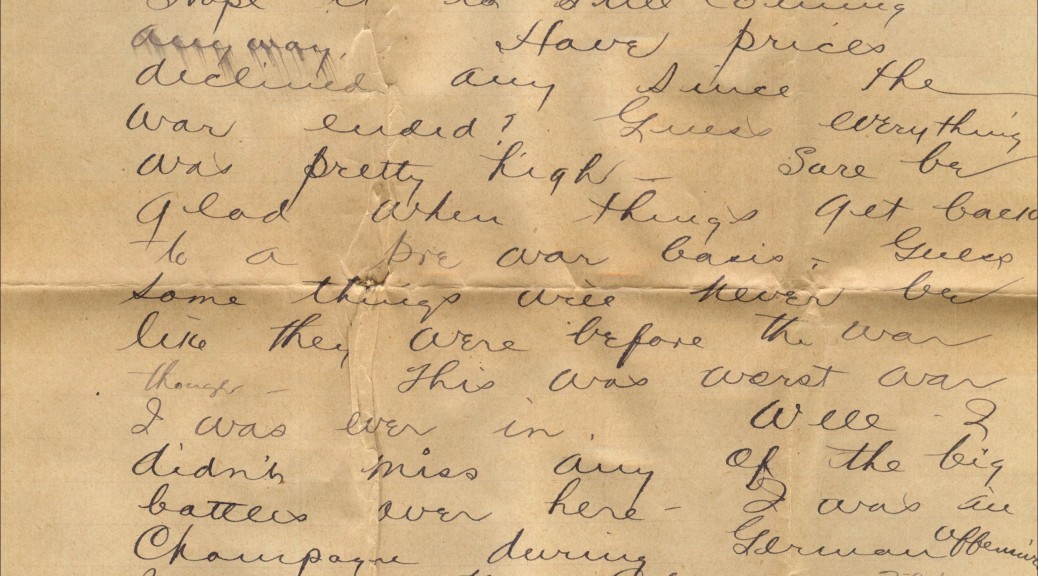 Hope it is still coming
any way. Have prices
declined any since the
war ended? Guess everything
was pretty high – Sure be
glad when things get back
to a pre war basis – Guess
some things will never be
like they were before the war
though – This was worst war
I was ever in. Well I
didn't miss any of the big
battles over here – I was in
Champagne during German offensive